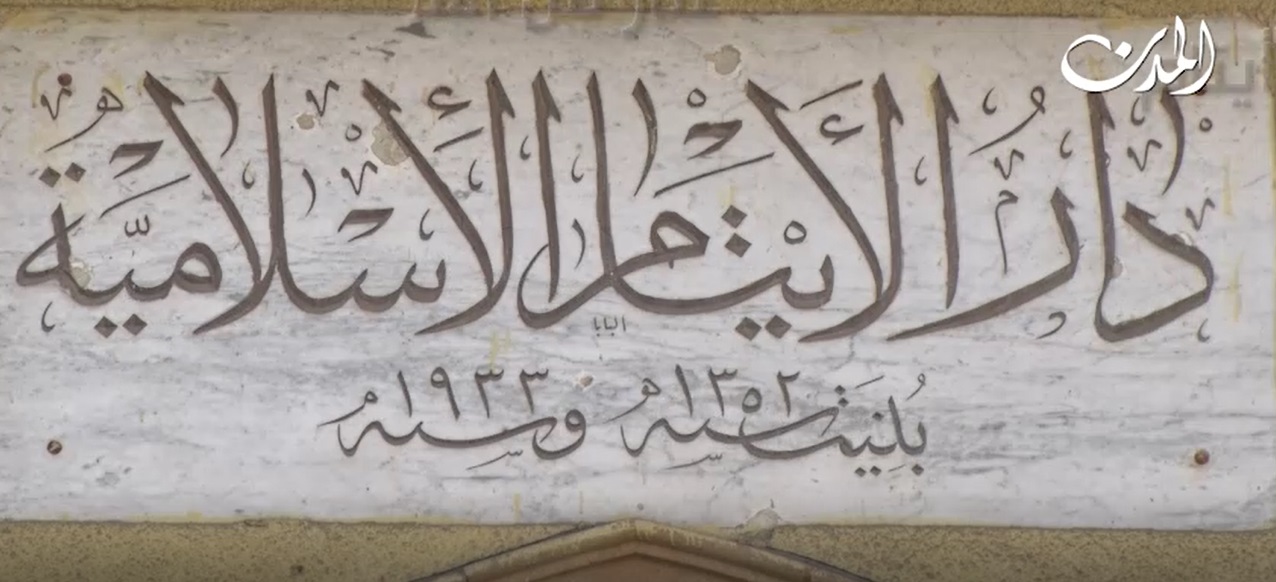 المدن
دَارُ الأَيْتَامِ الأَسْلَامِيَّةُ
البابا
بُنِيَت سنة ١٣٥٢ھ وسنة ١٩٣٣م